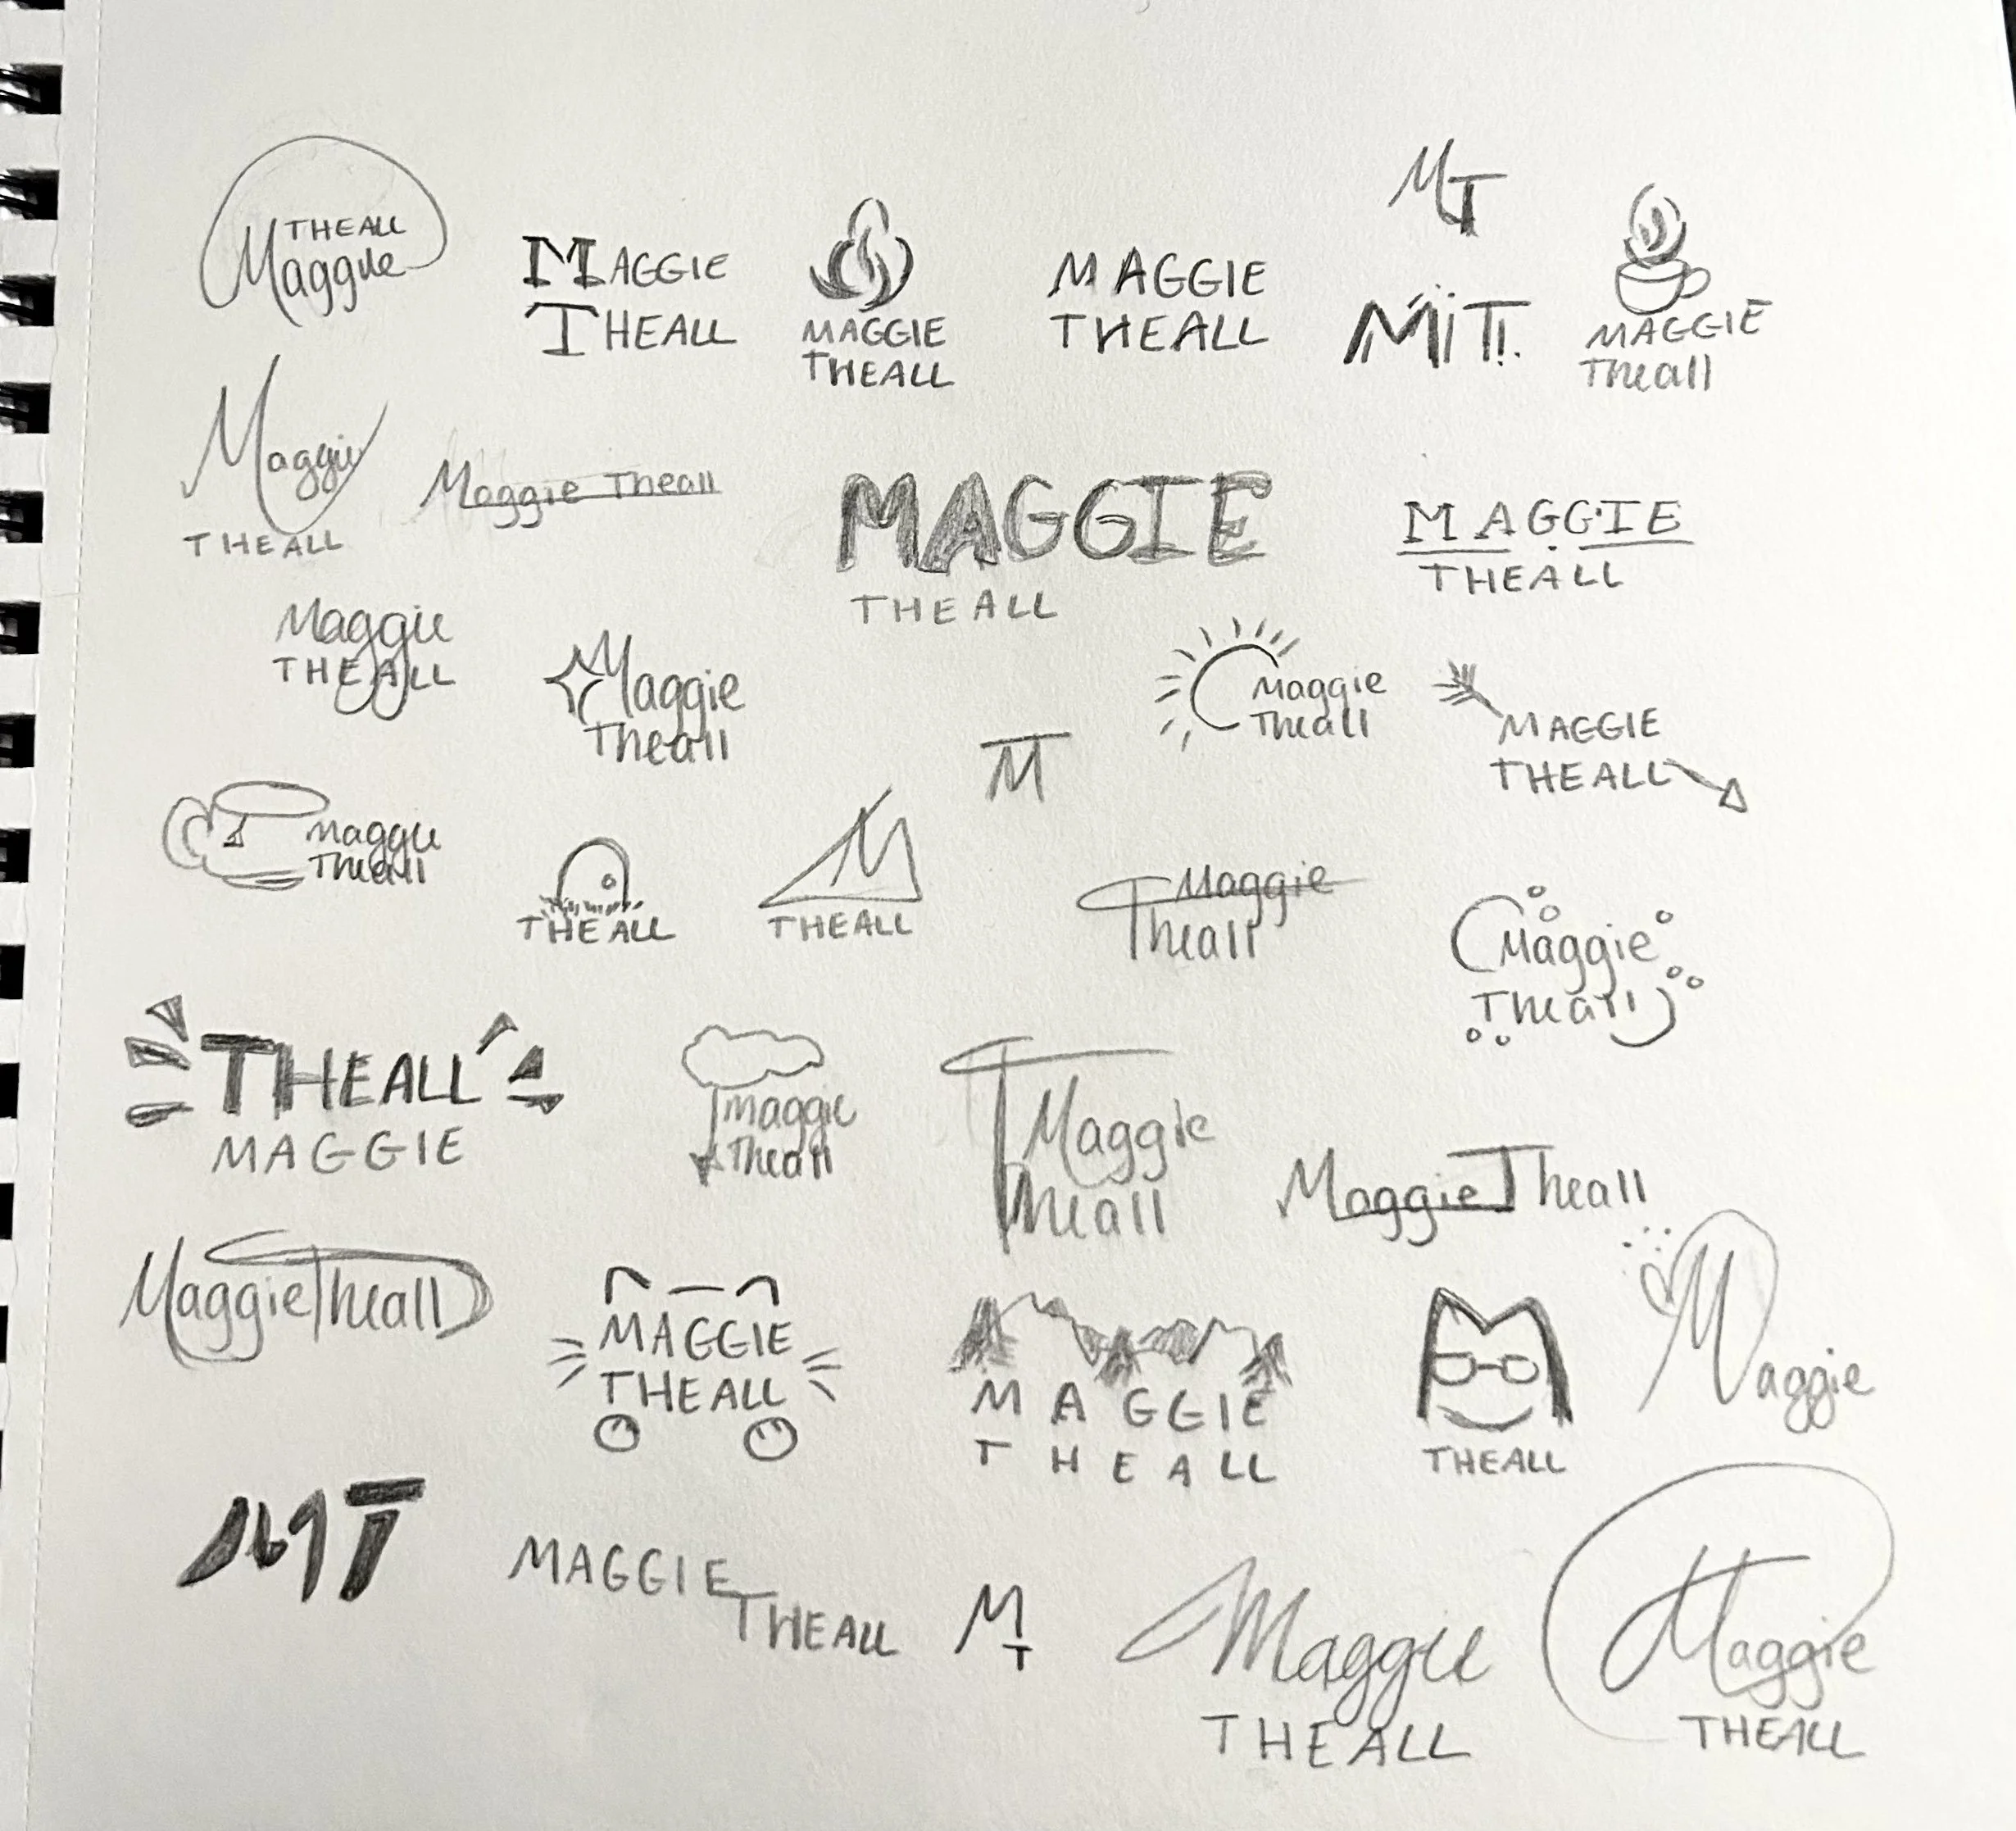 THEALL
Maggie
MAGGIE
THEALL
MAGGIE
THEALL
MAGGIE
THEALL
MT
MiT!.
MAGGIE
Theall
Maggie
THEALL
Maggie Theall
MAGGIE
THEALL
MAGGIE
THEALL
Maggie
THEALL
Maggie
Theall
M
Maggie
Theall
MAGGIE
THEALL
Maggie
Theall
THEALL
M
THEALL
Maggie
Theall
Maggie
Theall
THEALL
MAGGIE
Maggie
Theall
Maggie
Theall
Maggie Theall
Maggie Theall
MAGGIE
THEALL
MAGGIE
THEALL
THEALL
Maggie
MT
MAGGIE
THEALL
M
T
Maggie
THEALL
Maggie
THEALL